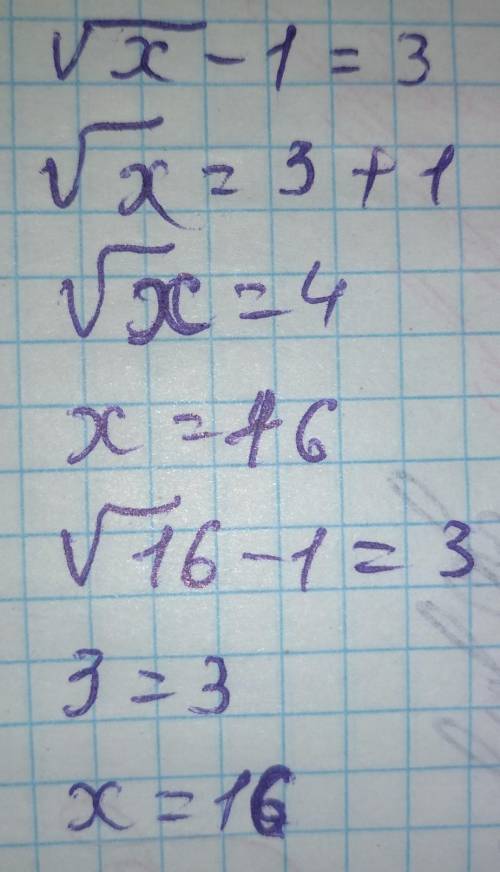 √x - 1 = 3
√x = 3 + 1
√x = 4
x = 16
√16 - 1 = 3
3 = 3
x = 16